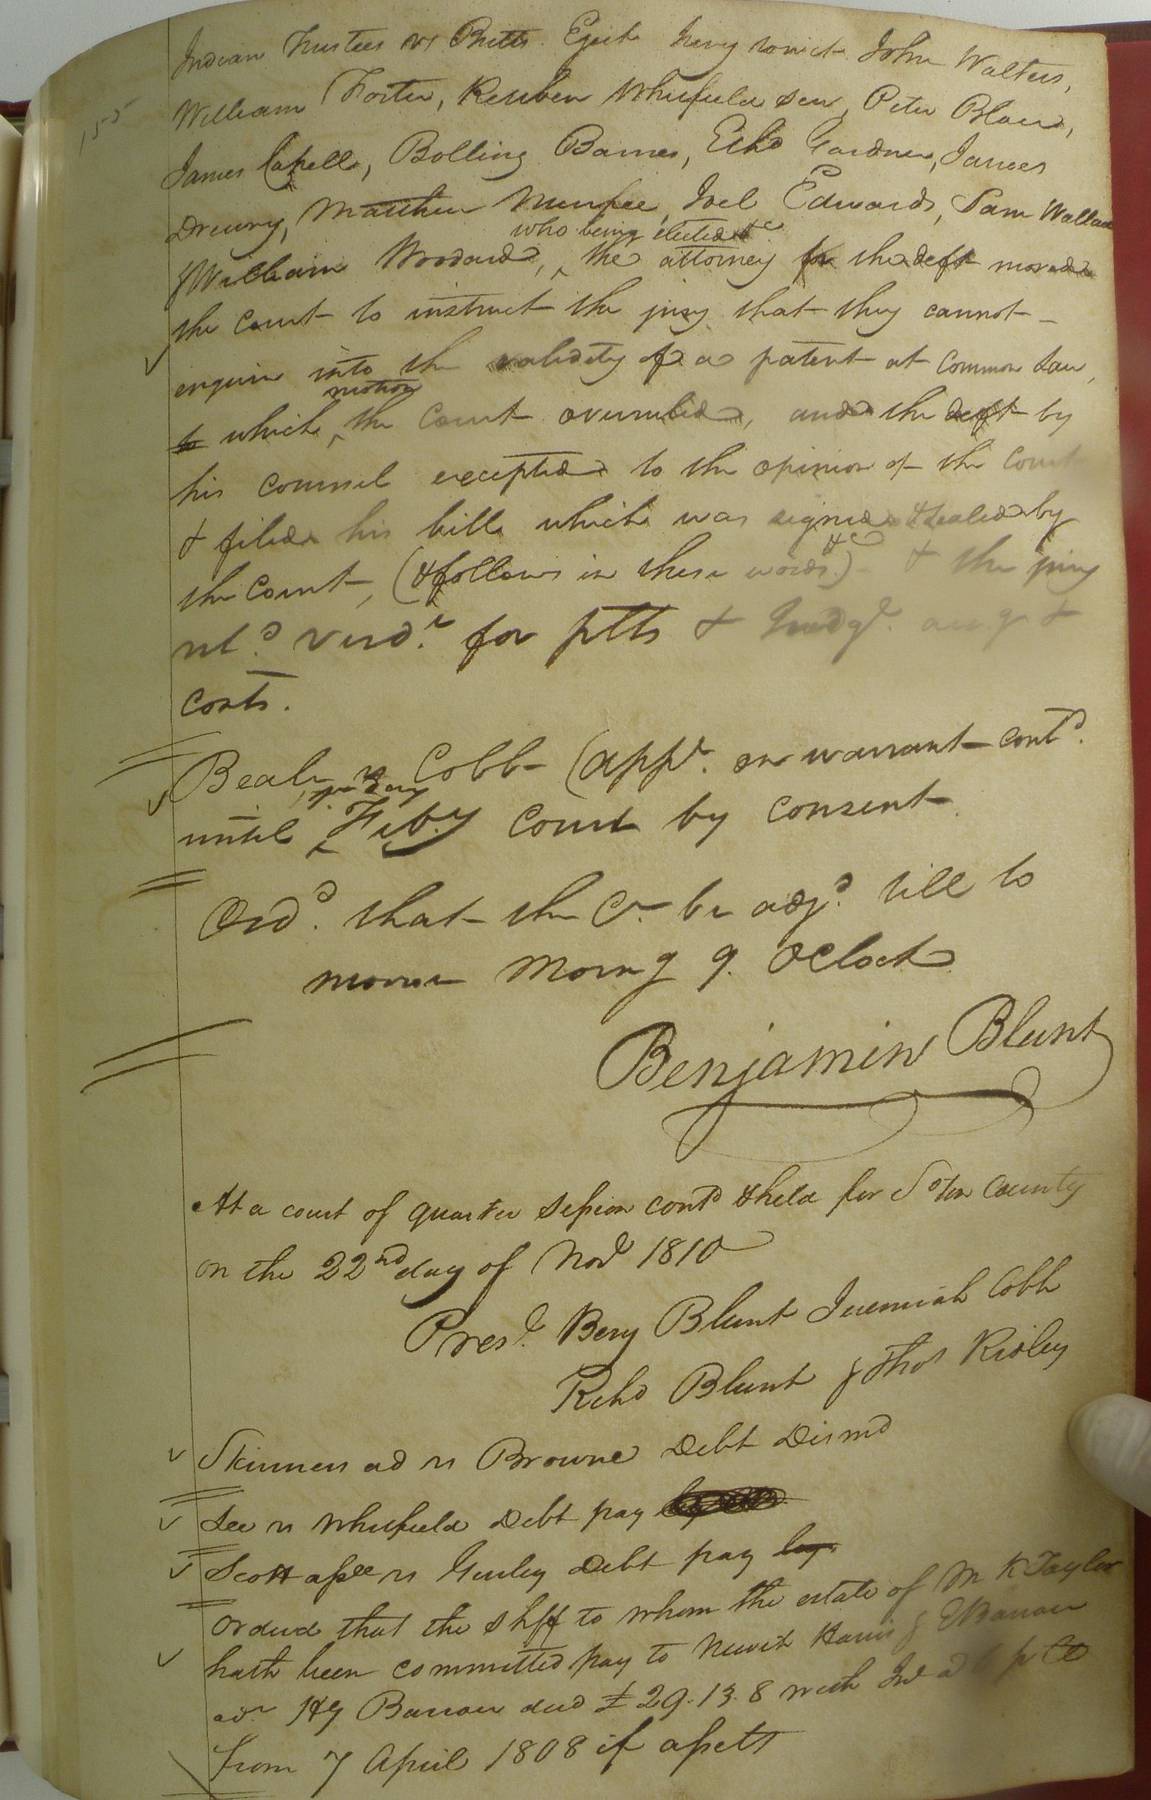 155
Indian Trustees vs Britts. Eject Jury to wit John Walters,
William Foster, Reuben Whitfield Sen, Peter Blow,
James Capell, Bolling Barnes, Echo Gardner, James
Drewry, Matthew Murfee, Joel Edwards, Sam Wallace
& William Woodard,
who being elected &c
the attorney for the deft moved
the Court to instruct the jury that they cannot
enquire into the validity of a patent at Common Law,
which
motion
the Court overruled, and the deft by
his counsel excepted to the opinion of the Court
& filed his bill which was signed & sealed by
the Court, (& follows in these words &c) & the jury
retd. verdt. for ptts & Judgt. &
costs.
Beale vs Cobb (appt. on warrant contd.
until Feby Court by consent.
Ord. that the Ct be adjd. till to
morrow morng 9. oClock
Benjamin Blunt
At a court of quarter session contd & held for Soton County
on the 22nd day of Novr 1810
Prest. Benj Blunt Jeremiah Cobb
Richd Blunt & Thos Ridley
Skinners ad vs Browne Debt Dismd
Lee vs Whitfield Debt pay
Scott assee vs Gurley Debt pay
ordered that the shff to whom the estate of M K Taylor
hath been committed pay to Newit Harris & E Barrow
adr Hy Barrow decd £ 29.13.8 with Int p Ct
from 7 April 1808 if assets